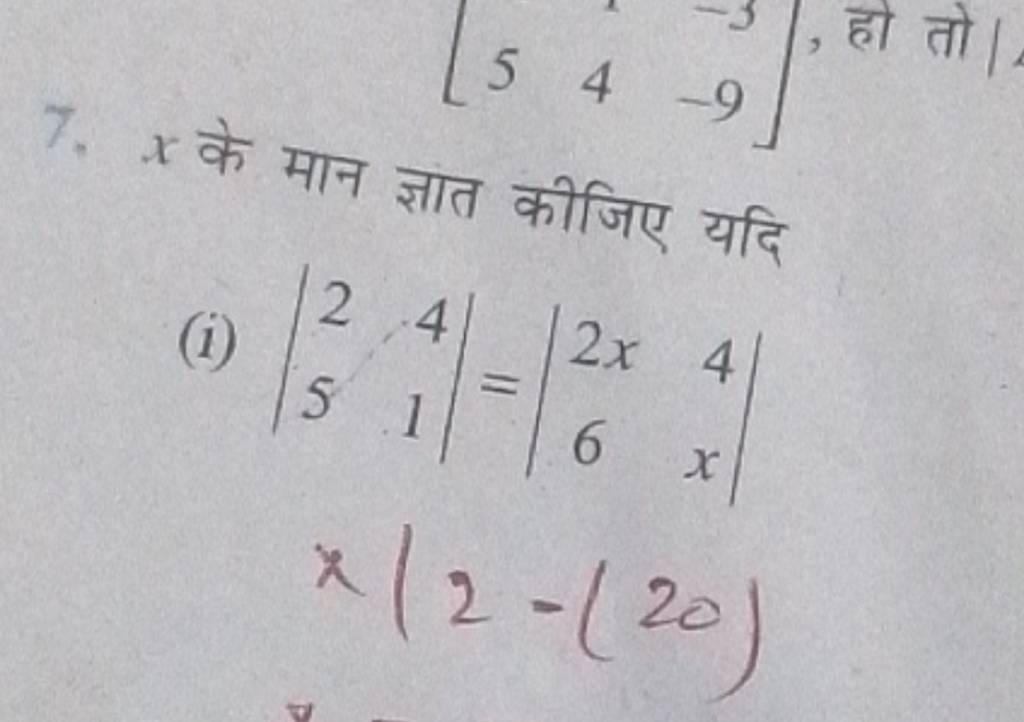 -3
5 4 -9 , हो तो |
7. x के मान ज्ञात कीजिए यदि
(i) | 2 4 | = | 2x 4 |
| 5 1 | | 6 x |
x | 2 - ( 20 )